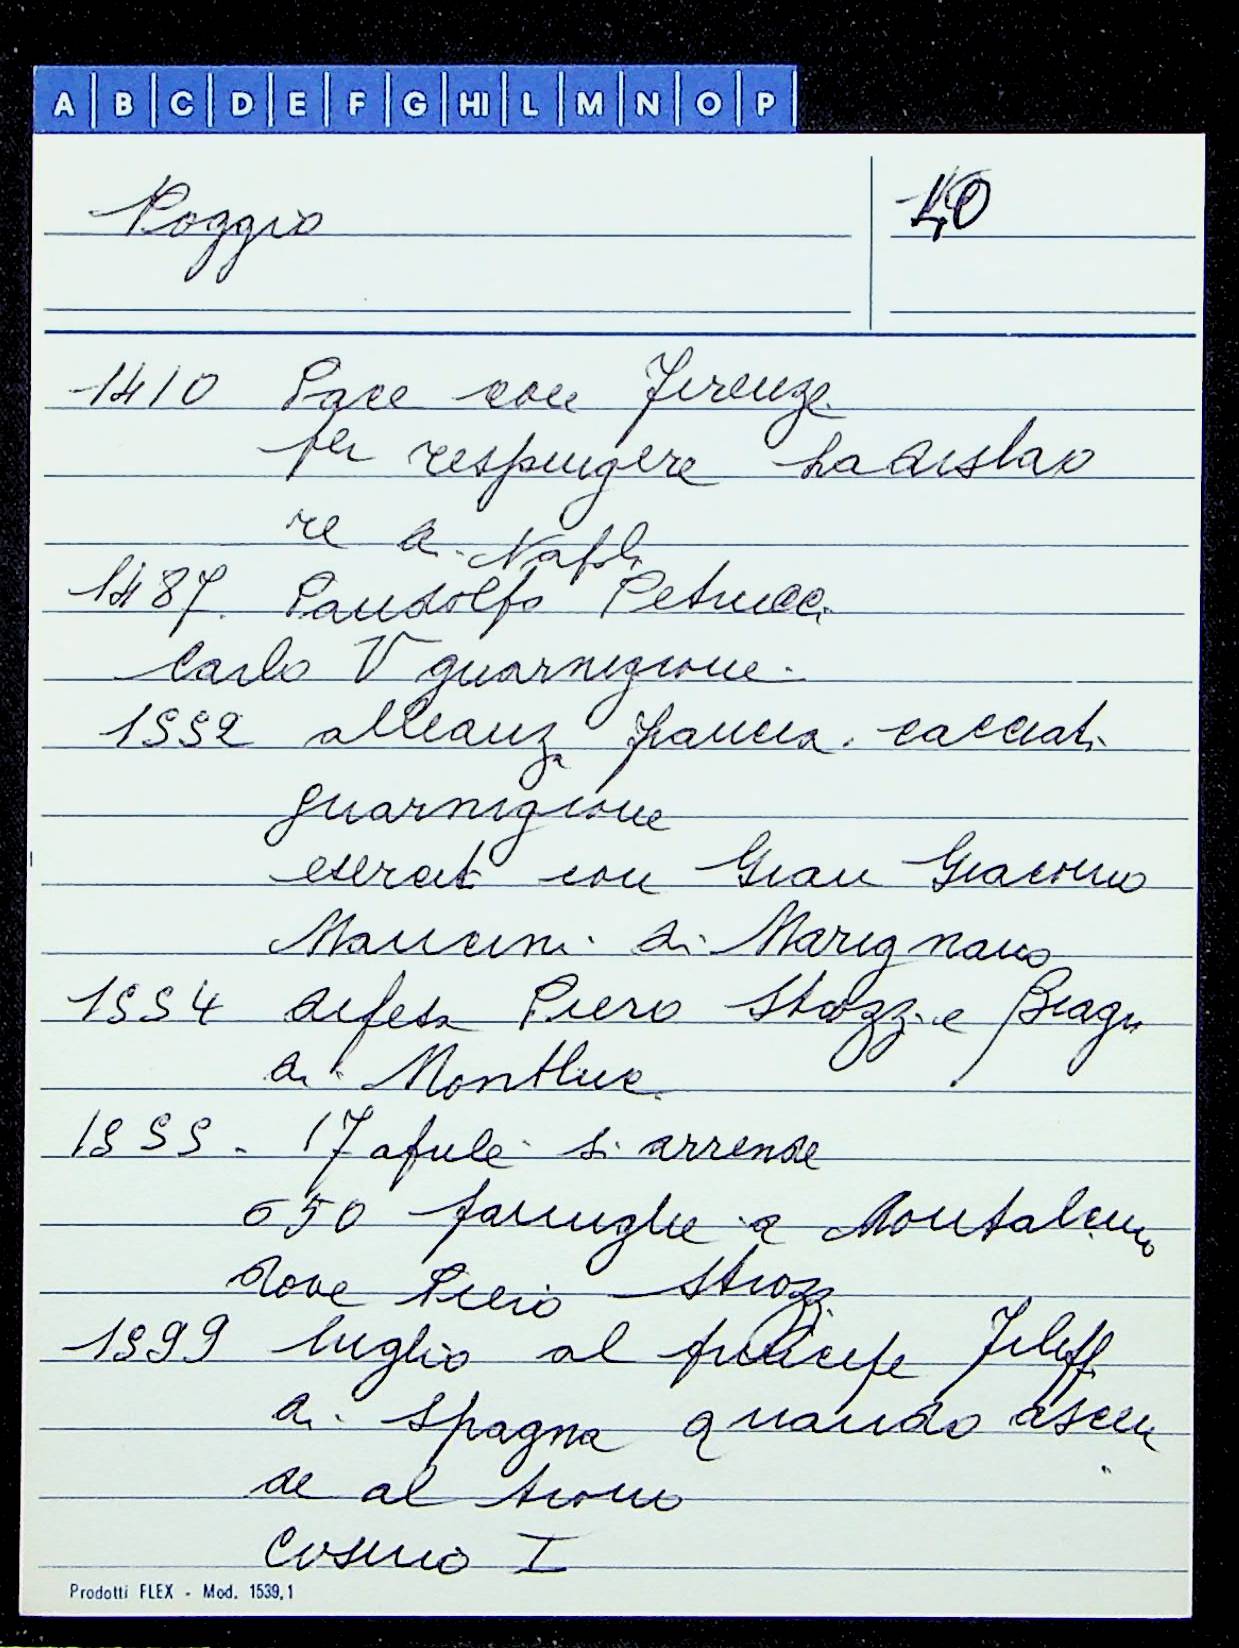 A B C D E F G HI L M N O P
Poggio 40
1410 Pace con Firenze
per respingere Ladislao
re di Napoli
1487. Pandolfo Petrucci
Carlo V guarnigione.
1552 alleanza francia. cacciati
guarnigione
eserciti con Gian Giacomo
di Marignano
1554 difesa Piero Strozzi e Biagio
di Montluc.
1555. 17 aprile si arrende
650 famiglie a Montalcino
dove Piero Strozzi
luglio al principe Filippo
di Spagna quando ascen
de al trono
Cosimo I
Prodotti FLEX - Mod. 1539,1